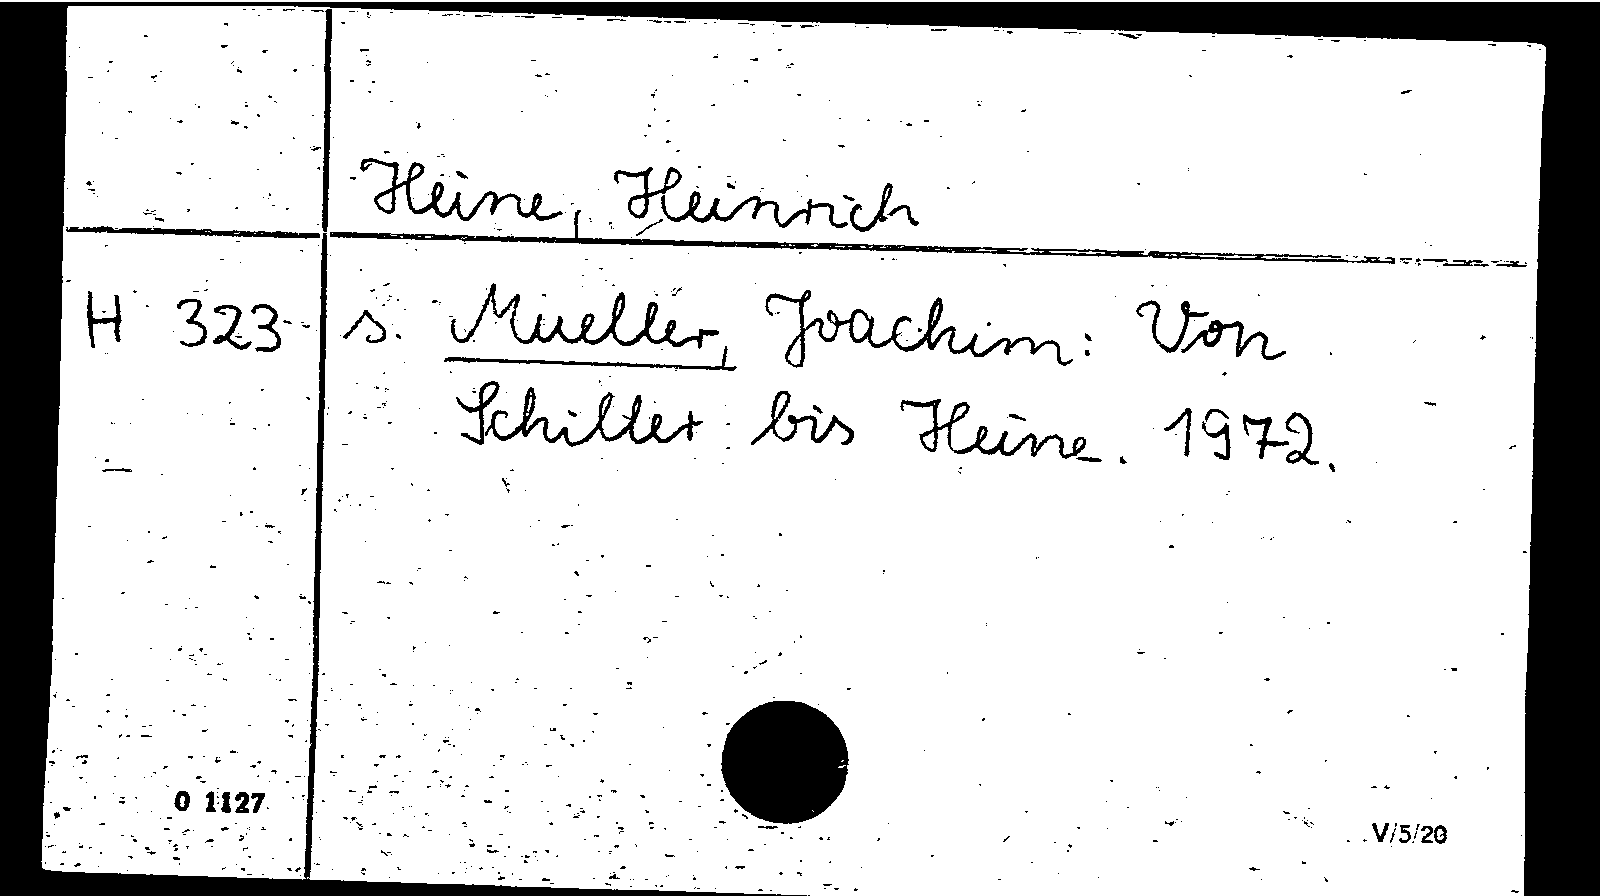 Heine, Heinrich
H 323 s. Mueller, Joachim: Von
Schiller bis Heine. 1972.
0 1127
V/5/20